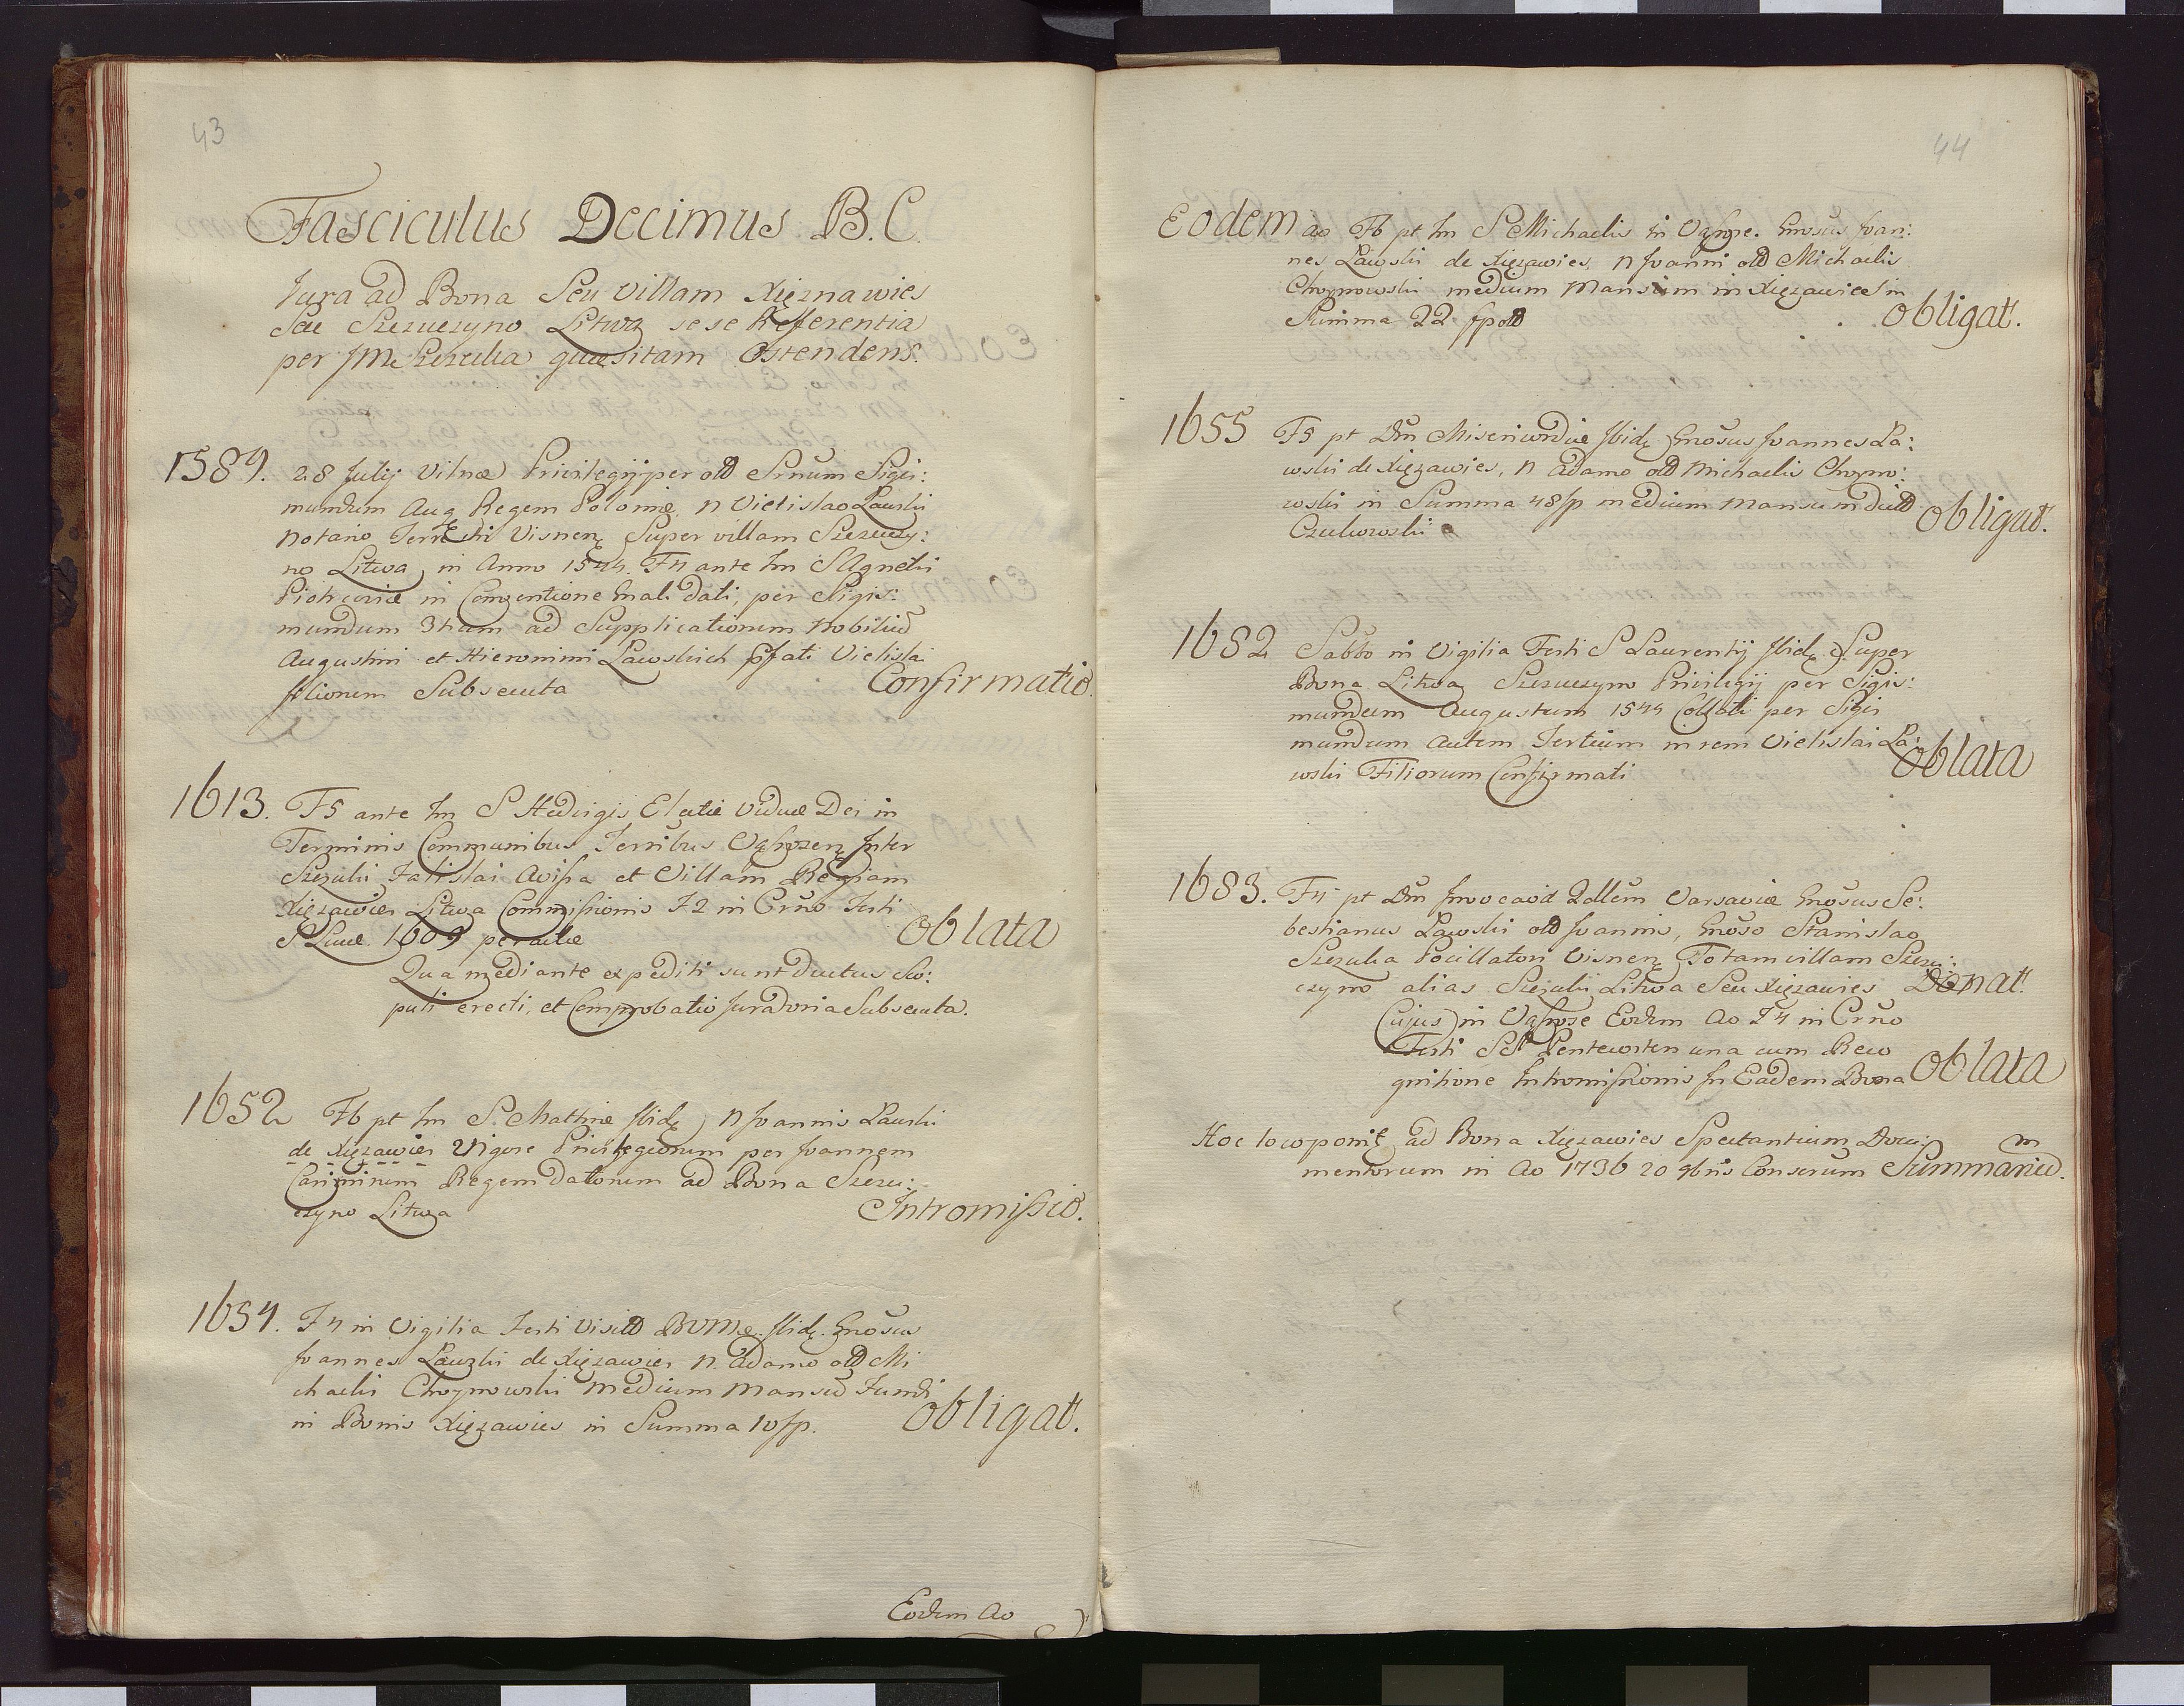 43
Fasciculus Decimus B.C.
Jura ad Bona Seu Villam Xięznawies
Seu Szczuczyno Litwa sese Referentia
per JM Szczuka quæsitam Ostendens.
1589. 28 Julij Vilnæ Privilegij per olld Srnum Sigis:
mundum Aug Regem Poloniæ, n Vietislao Lawski
Notario Terrestri Visnen Super villam Szczuczy:
no Litwa, in Anno 1544. F4 ante fm S Agnetis
Piotrcoviæ in Conventione Gnali dati, per Sigis:
mundum 3tium ad Supplicationem Nobiliū
Augustini et Hieronimi Lawskich pfati Vietislai
filiorum Subsecuta Confirmatio.
1613. F5 ante fm S Hedvigis Electæ viduæ Dei in
Terminis Communibus Terribus Vąsosen Inter
Szczuki Falislai Avissa et Villam Regiam
Xięzawies Litwa Commissionis F2 in Crno Festi
S Lucæ 1609 peractæ Oblata
Qua mediante expediti sunt ductus Sco:
puli erecti, et Comprobatio Juratoria Subsecuta.
1652 F6 pt fm S. Mathiæ Ibidę n Joannis Lawski
de Xięzawies Vigore Privilegiorum per Joannem
Casimirum Regem Datorum ad Bona Szczu:
czyno Litwa Intromissio.
1654. F4 in Vigilia Festi Visitt BVMæ. Ibidę Gnosus
Joannes Lawski de Xięzawies n. Adamo olld Mi
chaelis Choynowski Medium Mansū Fundi
in Bonis Xięzawies in Summa 10 fp. Obligat.
Eodem Ao
44
Eodem ao F6 pt fm S Michaelis in Vąsosze. Gnosus Joan:
nes Lawski de Xięzawies, n Joanni olld Michaelis
Choynowski medium Mansum in Xięzawies in
Summa 22 fp Obligat.
1655 F5 pt Dm Misericordiæ Ibidę Gnosus Joannes La:
wski de Xięzawies, n Adamo olld Michaelis Choyno:
wski in Summa 48 fp medium Mansum
Czukowski Obligat.
1682 Sabbo in Vigilia Festi S Laurentij Ibidę Super
Bona Litwa Szczuczyno Privilegij per Sigis:
mundum Augustum 1544 Collati per Sigis
mundum autem Tertium in rem Vietislai La:
wski Filiorum Confirmati Oblata
1683. F4 pt Dm Invocavit Varsaviæ Gnosus Se:
bestianus Lawski olld Joannis, Gnoso Stanislao
Szczuka Pocillatori Visnen Totam villam Szczu:
czyno alias Szczuki Litwa Seu Xięzawies Donat.
Cujus in Vąsosze Eodem Ao F4 in Crno
Festi SS Pentecosten una cum Reco
gnitione Intromissionis in Eadem Bona Oblata
Hoc loco ponitę ad Bona Xięzawies Spectantium Docu:
mentorum in Ao 1736 20 9bris Conscrum Summariū.